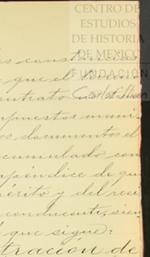 CENTRO DE
ESTUDIOS
DE HISTORIA
DE MEXICO
FUNDACIÓN
Carlos Slim
que el
contrato
puestos muni
os documentos el
cumulado con
apéndice de qu
érito y del reci
conducente, sien
que sigue:
tración de